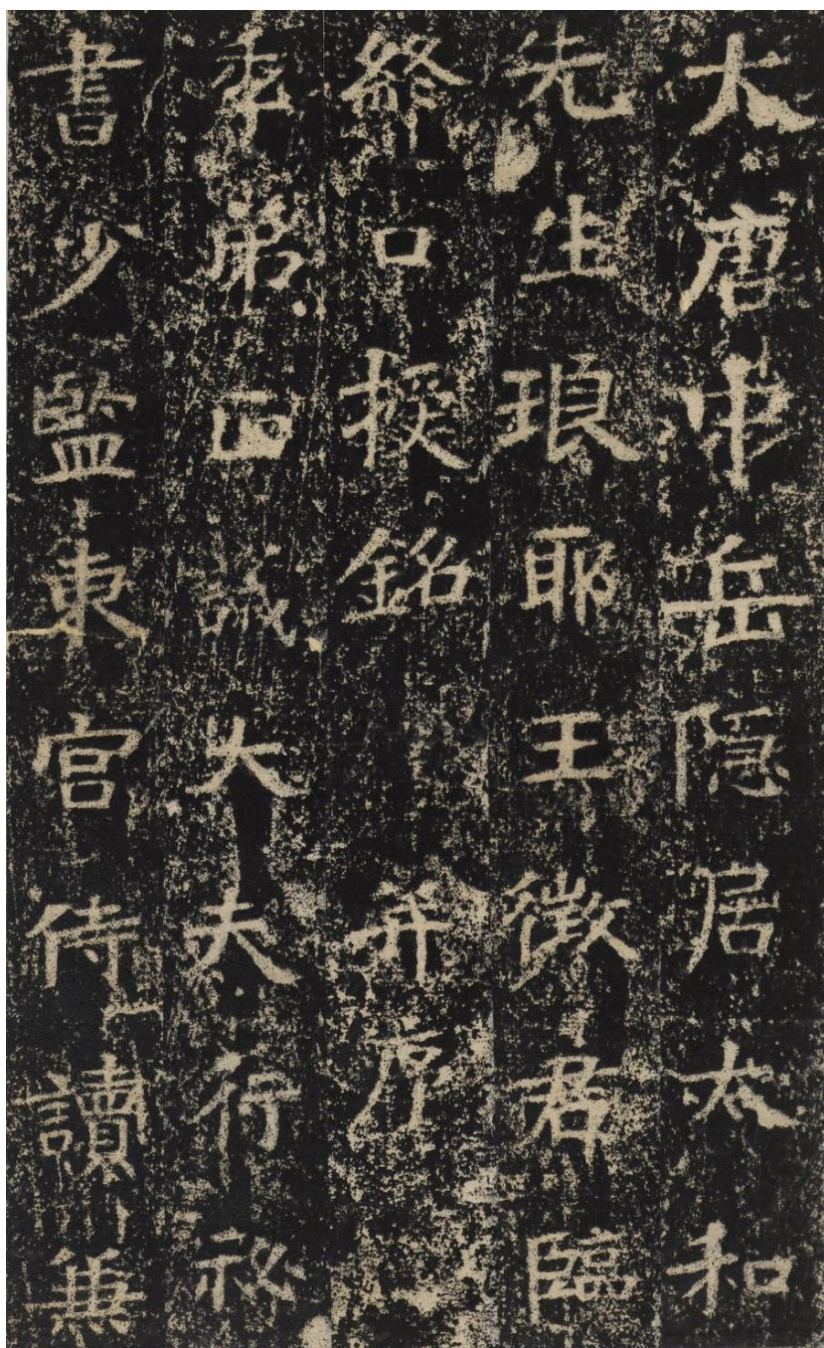 大唐中岳隱居太和
先生琅耶王徵君臨
終口授銘并序
季弟正議大夫行祕
書少監東宮侍讀兼